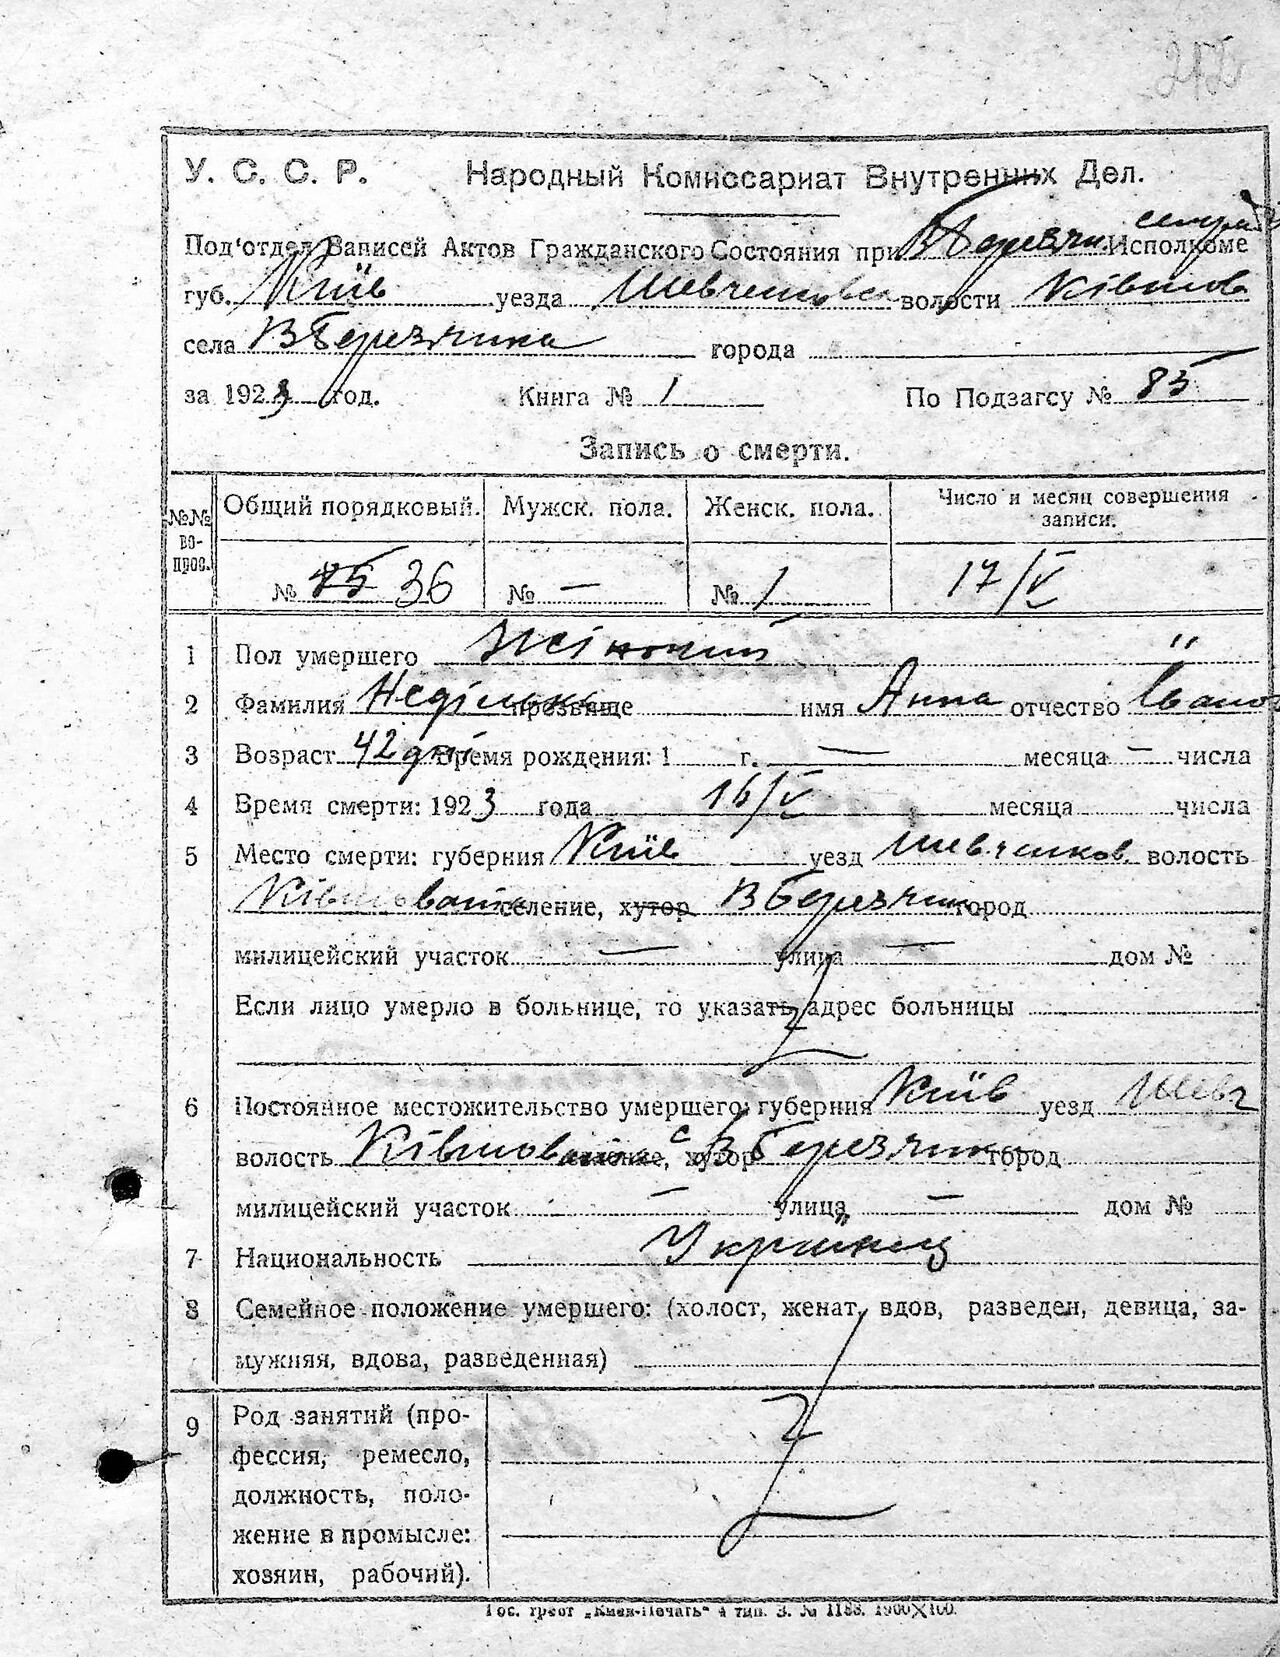 У. С. С. Р. Народный Комиссариат Внутренних Дел.
Под'отдел Записей Актов Гражданского Состояния при В Березян. Исполкоме
губ. Київ уезда Шевченковск волости Ківшов
села ВБерезянка города
за 1923 год. Книга № 1 По Подзагсу № 85
Запись о смерти.
№№ вопрос. Общий порядковый. Мужск. пола. Женск. пола. Число и месяц совершения записи.
№ 85 36 № — № 1 17/V
1 Пол умершего Жіночий "
2 Фамилия прозвище имя Анна отчество Іванов
3 Возраст 42 дні Время рождения: 1 г. — месяца — числа
4 Время смерти: 1923 года 16/V месяца числа
5 Место смерти: губерния Київ уезд Шевченков. волость
Ківшовата селение, хутор ВБерезянка город
милицейский участок — улица — дом №
Если лицо умерло в больнице, то указать адрес больницы
6 Постоянное местожительство умершего: губерния Київ уезд Шевч
волость Ківшовата селение, хутор с ВБерезянка город
милицейский участок — улица — дом №
7 Национальность Українец
8 Семейное положение умершего: (холост, женат, вдов, разведен, девица, за-
мужняя, вдова, разведенная)
9 Род занятий (про-
фессия, ремесло,
должность, поло-
жение в промысле:
хозяин, рабочий).
Гос. трест „Киев-Печать" 4 тип. З. № 1188. 1900Х100.